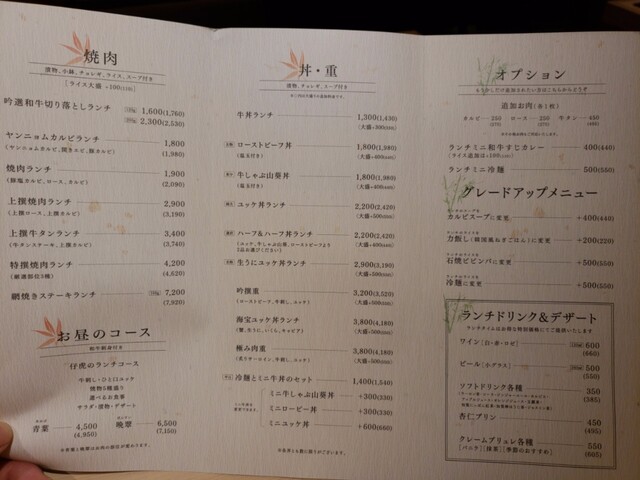 焼肉
漬物、小鉢、チョレギ、ライス、スープ付き
［ライス大盛 +100(110)］
吟選和牛切り落としランチ 1,600(1,760)
2,300(2,530)
ヤンニョムカルビランチ 1,800
(1,980)
焼肉ランチ 1,900
(豚塩カルビ、ロース、カルビ) (2,090)
上撰焼肉ランチ 2,900
(上撰ロース、上撰カルビ) (3,190)
上撰牛タンランチ 3,400
(3,740)
特撰焼肉ランチ 4,200
(厳選部位3種) (4,620)
網焼きステーキランチ 7,200
(7,920)
お昼のコース
仔虎のランチコース
牛刺し・ひと口ユッケ
焼物5種盛り
選べるお食事
サラダ・漬物・デザート
青葉 4,500
(4,950)
晩翠 6,500
(7,150)
丼・重
漬物、チョレギ、スープ付き
牛丼ランチ 1,300(1,430)
(大盛+300(330))
ローストビーフ丼 1,800(1,980)
(塩玉付き) (大盛+400(440))
牛しゃぶ山葵丼 1,800(1,980)
(塩玉付き) (大盛+400(440))
ユッケ丼ランチ 2,200(2,420)
(大盛+500(550))
ハーフ&ハーフ丼ランチ 2,200(2,420)
(ユッケ、牛しゃぶ山葵、ローストビーフより (大盛+400(440))
2品お選びください)
生うにユッケ丼ランチ 2,900(3,190)
(大盛+500(550))
吟撰重 3,200(3,520)
(ローストビーフ、牛刺し、ユッケ) (大盛+500(550))
海宝ユッケ丼ランチ 3,800(4,180)
(蟹、生うに、いくら、キャビア) (大盛+500(550))
極み肉重 3,800(4,180)
(炙りサーロイン、牛刺し、ユッケ) (大盛+500(550))
冷麺とミニ牛丼のセット 1,400(1,540)
ミニ牛しゃぶ山葵丼 +300(330)
ミニロービー丼 +300(330)
ミニユッケ丼 +600(660)
オプション
もう少しだけ追加されたい方はこちらからどうぞ
追加お肉(各1枚)
カルビ 250
(275)
ロース 250
(275)
牛タン 450
(495)
ランチミニ和牛すじカレー 400(440)
(ライス追加は+100(110))
ランチミニ冷麺 500(550)
グレードアップメニュー
カルビスープに変更 +400(440)
力飯(韓国風おきごはん)に変更 +200(220)
石焼ビビンバに変更 +500(550)
冷麺に変更 +500(550)
ランチドリンク&デザート
ランチタイムはお得な特別価格にてご提供いたします
ワイン[白・赤・ロゼ] 600
(660)
ビール[小グラス] 500
(550)
ソフトドリンク各種 350
(385)
杏仁プリン 450
(495)
クレームブリュレ各種 550
[バニラ][抹茶][季節のおすすめ] (605)